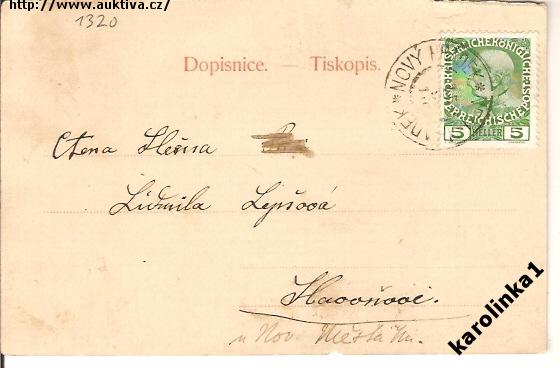 http://www.auktiva.cz/
1320
Dopisnice. — Tiskopis.
NOVÝ HRÁDEK
KAISERLICHE KÖNIGLICHE ÖSTERREICHISCHE POST
5 HELLER 5
Ctěná Slečna
Lidmila Lepšová
u Nov. Města n.
karolinka1